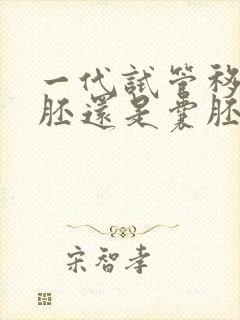 一代試管移
胚還是囊胚
宋智孝